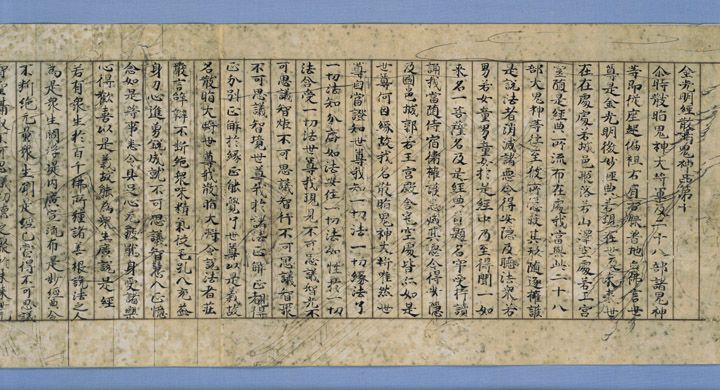 金光明經散脂鬼神品第十
尒時散脂鬼神大將軍及二十八部諸鬼神
等即從座起偏袒右肩右膝著地白佛言世
尊是金光明微妙經典若現在世及未來世
在在處處若城邑聚落若山澤空處若王宮
宅隨是經典所流布在處我當與此二十八
部大鬼神等往至彼所隱蔽其形隨逐擁護
是說法者消滅諸惡令得安隱及聽法眾若
男若女童男童女於是經中乃至得聞一如
來名一菩薩名及是經典首題名字受持讀
誦我當隨侍宿衛擁護悉滅其惡令得安隱
及國邑城郭若王宮殿舍宅空處皆亦如是
世尊何因緣故我名散脂鬼神大將唯然世
尊自當證知世尊我知一切法一切緣法了
一切法知法分齊如法安住一切法如性於一切
法含受一切法世尊我現見不可思議智光不
可思議智炬不可思議智行不可思議智聚
不可思議智境世尊我於諸法正解正觀得
正分別正解於緣正能覺了世尊以是義故
名散脂大將世尊我散脂大將令說法者莊
嚴言辭辯不斷絕眾味精氣從毛孔入充益
身力心進勇銳成就不可思議智慧入正憶
念如是等事悉令具足心无疲厭身受諸樂
心得歡喜以是義故能為眾生廣說是經
若有眾生於百千佛所種諸善根說法之人
為是眾生閻浮提內廣宣流布是妙經典令
不斷絕无量眾生聞是經已當得不可思議